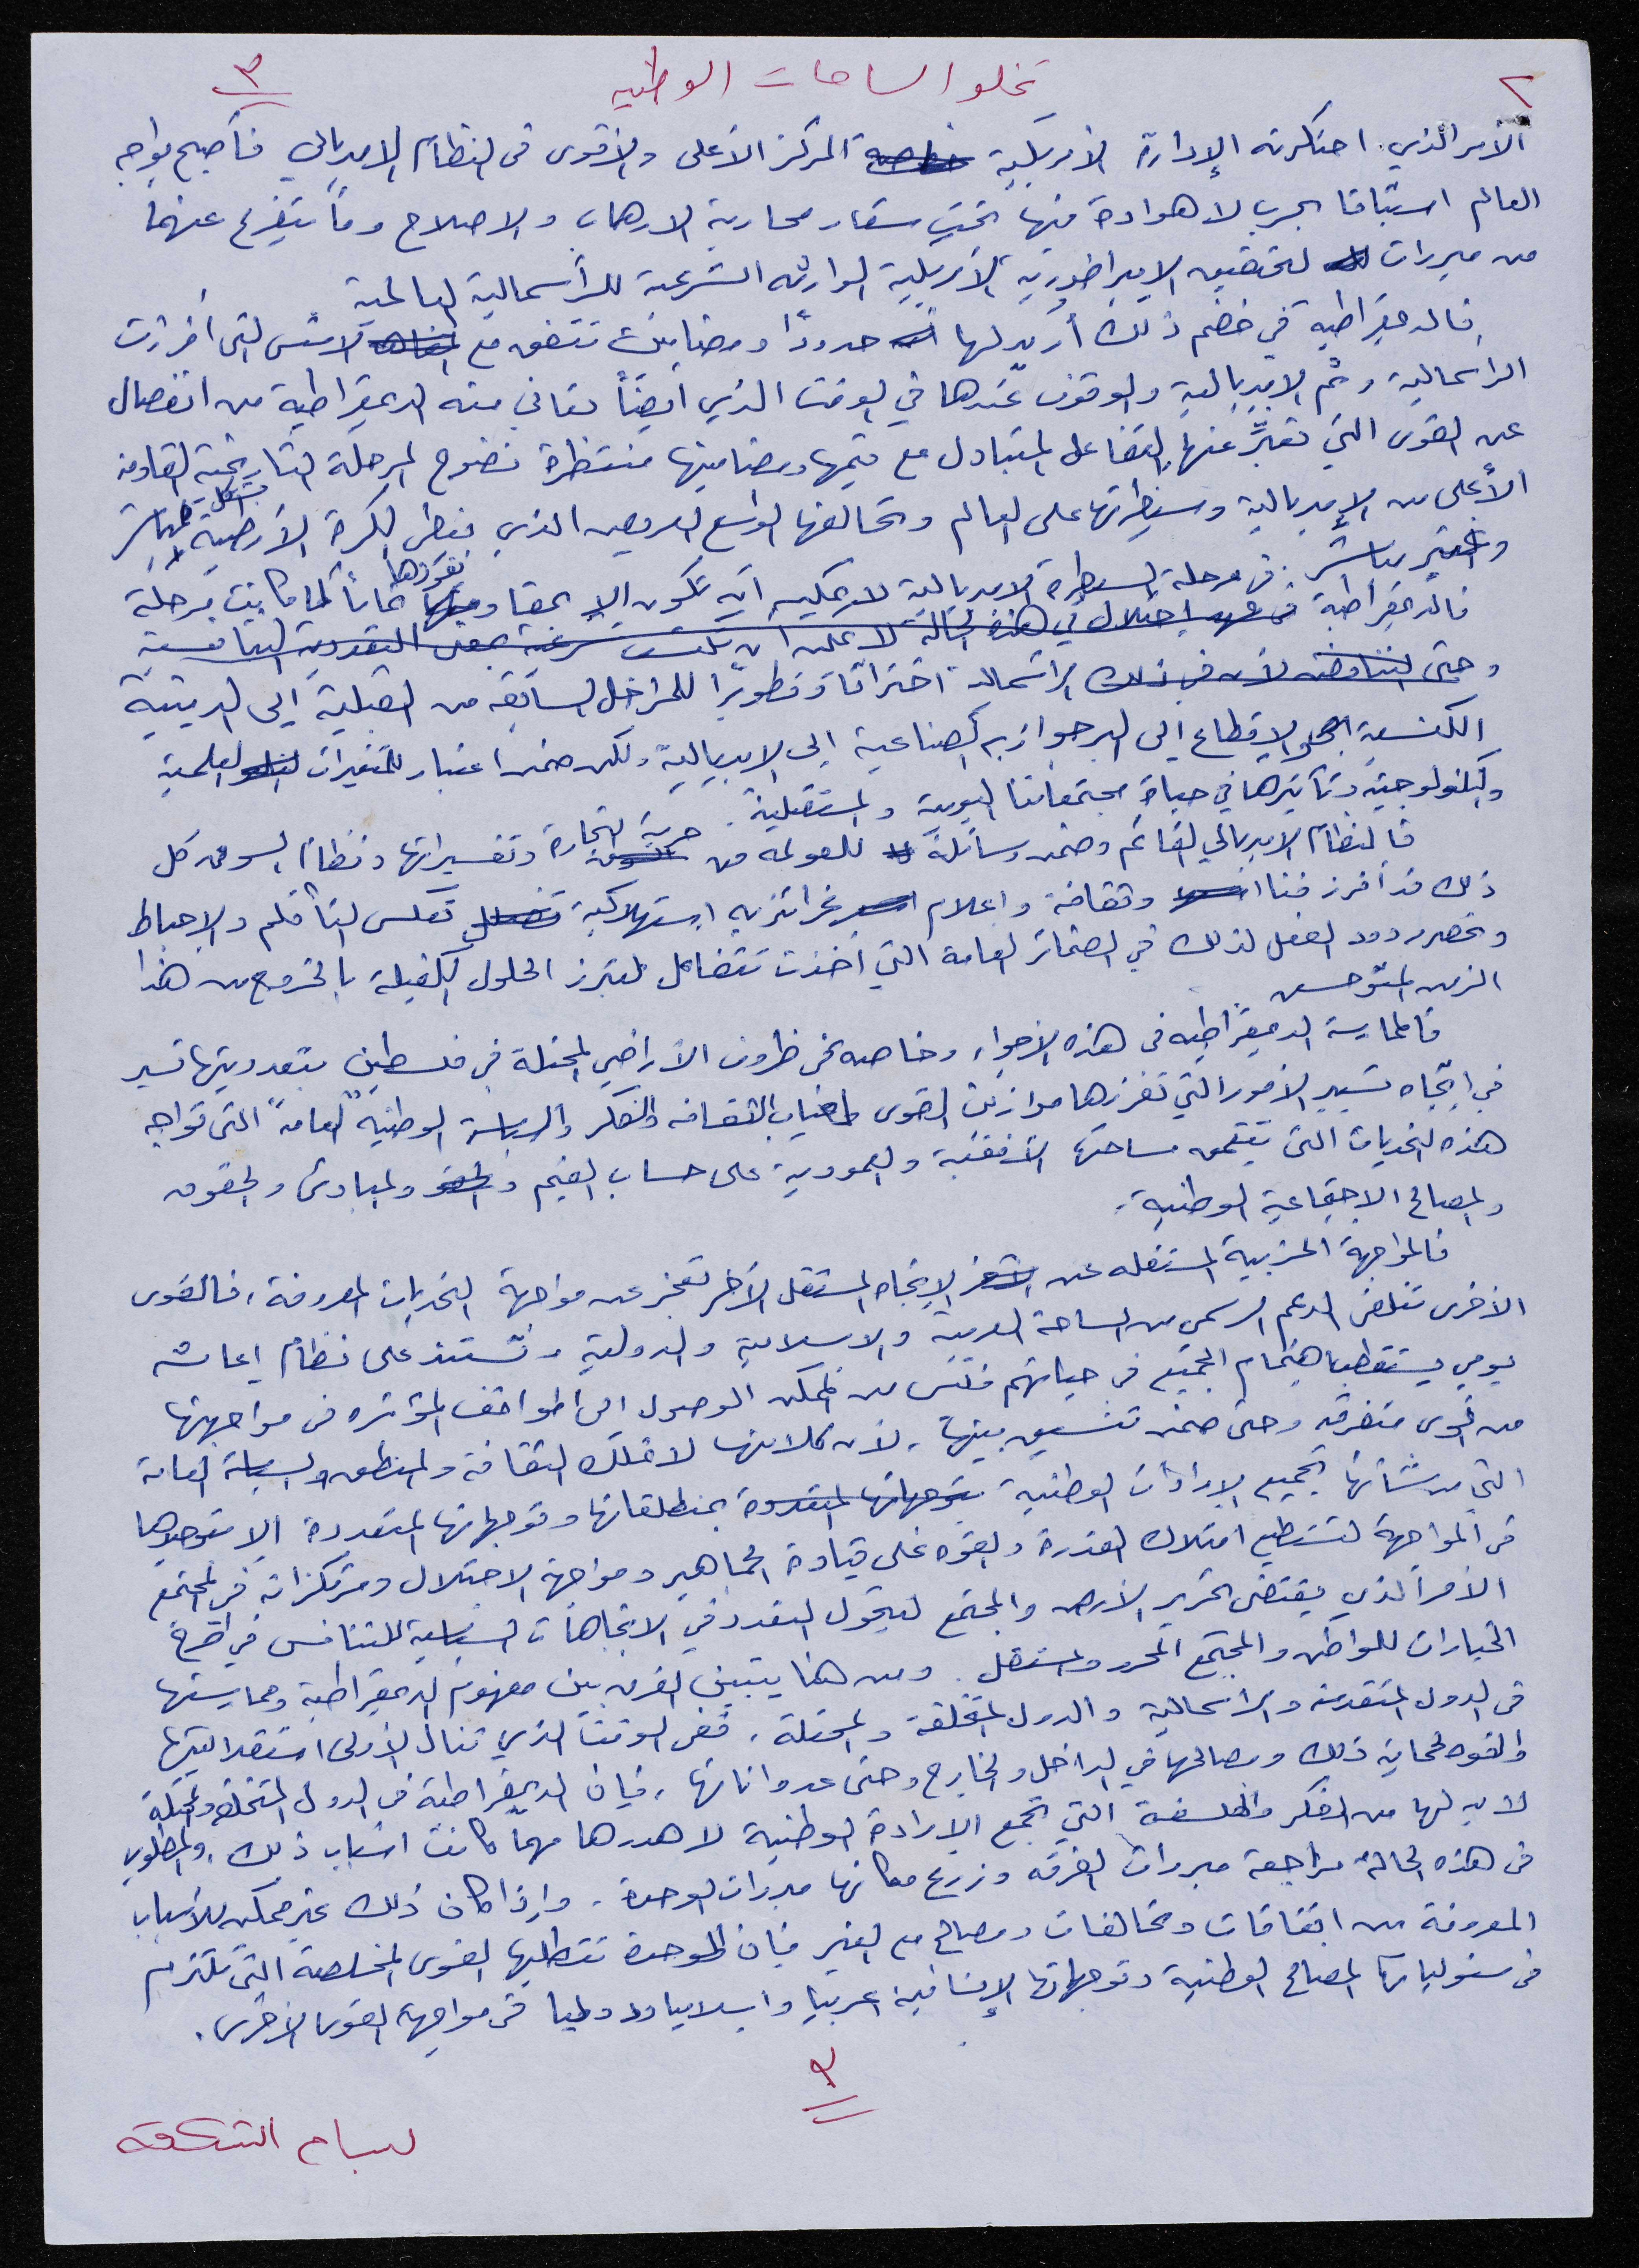 ٢ تخلو الساحات الوطنية ٣
الأمر الذي احتكرته الإدارة الأمريكية المركز الأعلى والأقوى في النظام الامبريالي فأصبح يواجه
العالم استباقا بحرب لا هوادة فيها تحت ستار محاربة الارهاب والاصلاح وما يتفرع عنهما
من مبررات لتحقيق الامبراطورية الأمريكية الوارثه الشرعية للرأسمالية العالمية
فالديمقراطية في خضم ذلك أريد لها حدودًا ومضامين تتفق مع الاسس التي أفرزت
الراسمالية ثم الامبريالية والوقوف عندها في الوقت الذي أيضًا تعاني منه الديمقراطية من انفصال
عن القوى التي تعبّر عنها بالتفاعل المتبادل مع قيمها ومضامينها منتظرة نضوج المرحلة التاريخية القادمة
الأعلى من الإمبريالية وسيطرتها على العالم وتحالفها الواسع العريض الذي يغطي الكرة الأرضية بشكل مباشر
وغير مباشر.
فالديمقراطية في مرحلة السيطرة الامبريالية لا يمكن ان تكون إلا بمقاومة نفوذها تماماً كما كانت مرحلة
الراسمالية اختراقًا وتطويرًا للمراحل السابقه من القبلية إلى الدينية
الكنسية والاقطاع الى البرجوازيه الصناعية الى الامبريالية ولكن ضمن اعتبار للمتغيرات العلمية
والتكنولوجية وتأثيرها في حياة مجتمعاتنا اليومية والمستقبلية.
فالنظام الامبريالي القائم وضمن وسائله للعولمه من حرية التجارة وتفسيراتها ونظام السوق كل
ذلك قد أفرز فنا وثقافة واعلام غرائزيه استهلاكية تعكس التأقلم والاحباط
وتحصر ردود الفعل لذلك في الضمائر العامة التي اخذت تتفاعل لتبرز الحلول الكفيلة بالخروج من هذا
الزمن المتوحش
فالممارسة الديمقراطيه في هذه الأجواء وخاصه في ظروف الأراضي المحتلة في فلسطين بتعدديتها تسير
في اتجاه تسيير الأمور التي تفرزها موازين القوى بغياب الثقافه والفكر والسياسة الوطنية "العامة" التي تواجه
هذه التحديات التي تتعمق مساحتها الأفقية والعمودية على حساب القيم والمبادئ والحقوق
والمصالح الاجتماعية الوطنية.
فالمواجهة الحزبية المستقله عن الإتجاه المستقل الآخر تعجز عن مواجهة التحديات المعروفة، فالقوى
الأخرى تتلقى الدعم الرسمي من الساحة العربية والاسلامية والدولية وتستند على نظام إعاشه
يومي يستقطب اهتمام الجميع في حياتهم فليس من الممكن الوصول الى المواقف المؤثره في مواجهتها
من قوى متفرقه وحتى ضمن تنسيق بينها، لأن كلا منها لا تملك الثقافة والمنطق والسياسة العامة
التي من شأنها تجميع الإرادات الوطنية بمنطلقاتها وتوجهاتها المتعددة إلا بتوحيدها
في المواجهة لتستطيع امتلاك القدرة والقوه على قيادة الجماهير ومواجهة الاحتلال ومرتكزاته في المجتمع
الأمر الذي يقتضي تحرير الأرض والمجتمع ليتحول التعدد في الاتجاهات السياسية للتنافس في
الخيارات للمواطن والمجتمع المحرر والمستقل. ومن هنا يتبين الفرق بين مفهوم الديمقراطية وممارستها
في الدول المتقدمة والراسمالية والدول المتخلفة والمحتلة، ففي الوقت الذي تنال الأولى استقلاليتها
والقوه لحماية ذلك ومصالحها في الداخل والخارج وحتى عدواناتها، فإن الديمقراطية في الدول المتخلفة والمحتلة
لا بد لها من الفكر والفلسفة التي تجمع الارادة الوطنية لا هدرها مهما كانت اسباب ذلك. والمطلوب
في هذه الحالة مراجعة مبررات الفرقه وزرع مكانها مبررات الوحدة. وإذا كان ذلك غير ممكن للأسباب
المعروفة من اتفاقات وتحالفات ومصالح مع الغير فإن الوحدة تتطلبها القوى المخلصة التي تلتزم
في مسئولياتها المصالح الوطنية وتوجهاتها الإنسانية عربيا واسلاميا ودوليا في مواجهة القوى الأخرى.
٣
بسام الشكعة